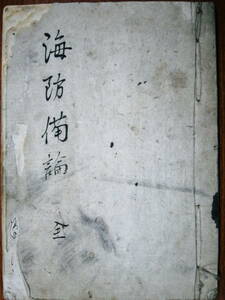 海防備論 全